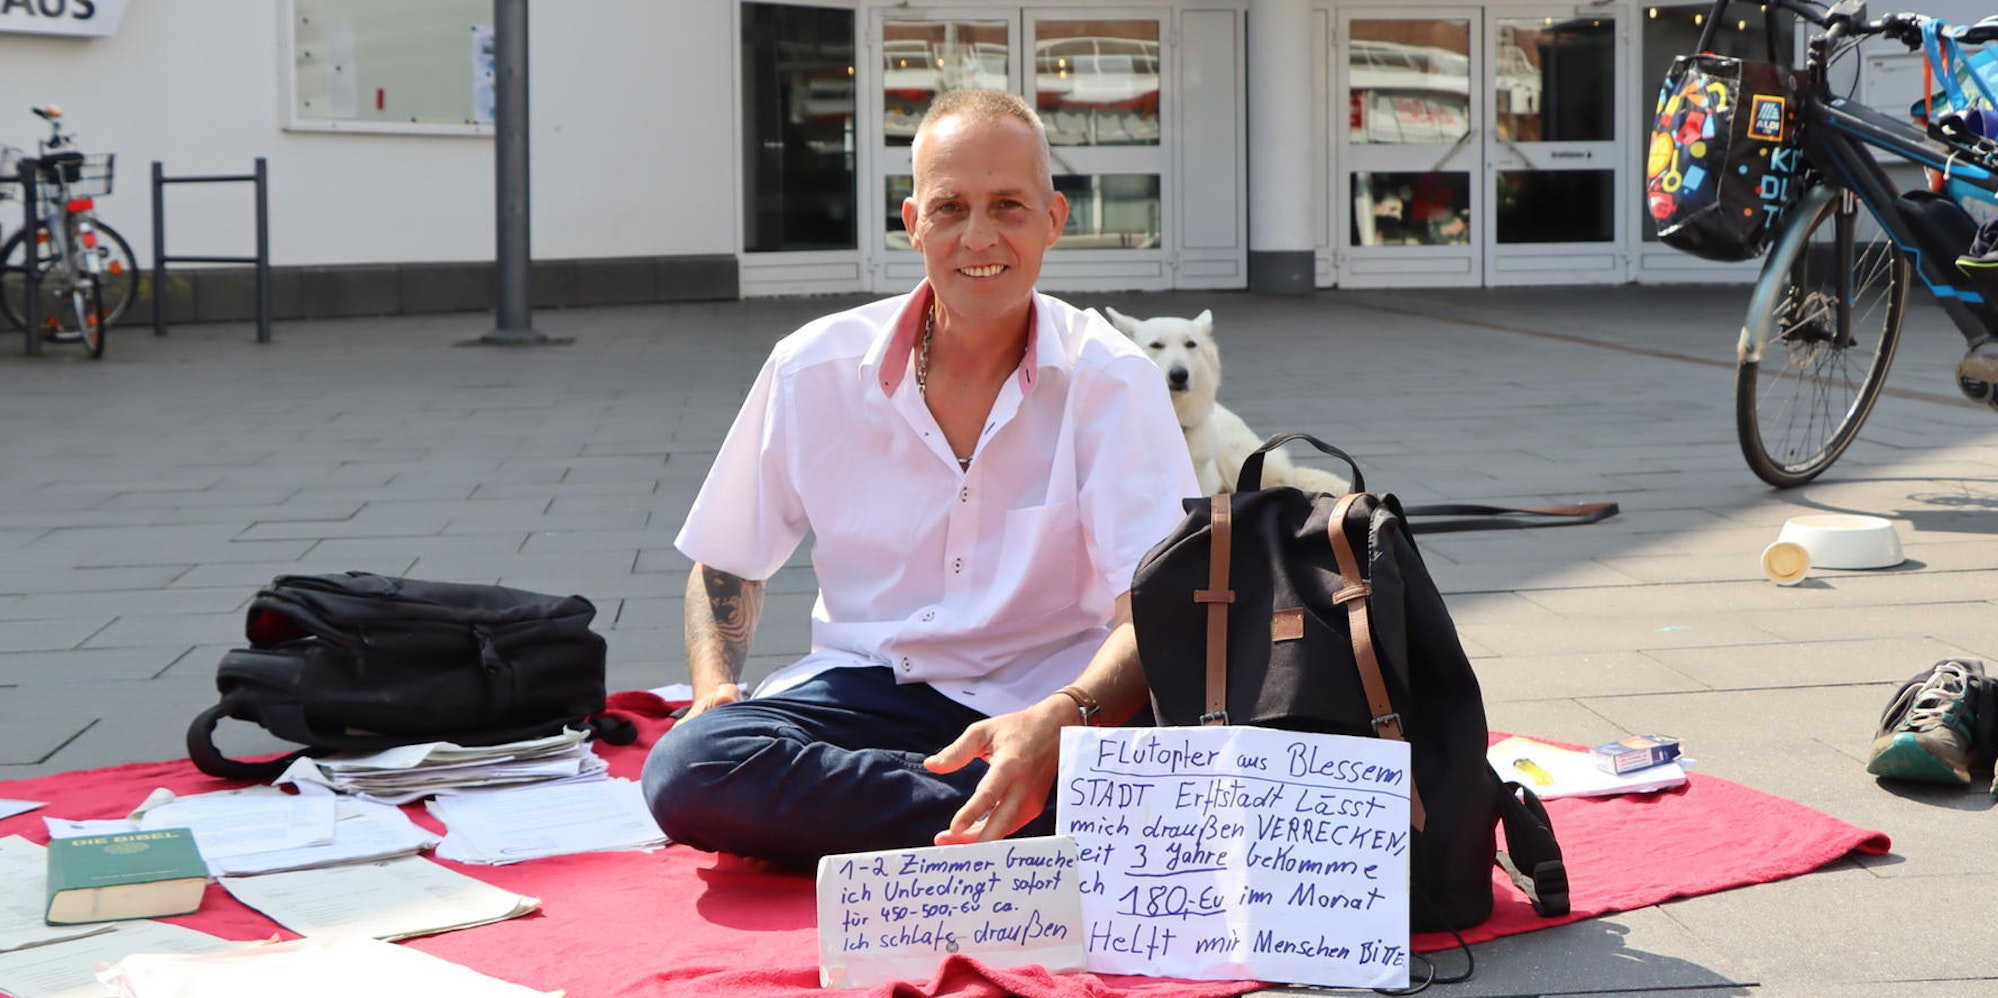 AUS
ALDI
K
DIE BIBEL
Flutopfer aus Blessem
STADT Erftstadt Lässt
mich draußen VERRECKEN,
seit 3 Jahre bekomme
ich 180,-Eu im Monat
Helft mir Menschen BiTTE
1-2 Zimmer brauche
ich Unbedingt sofort
für 450-500,-Eu ca.
Ich schlafe draußen